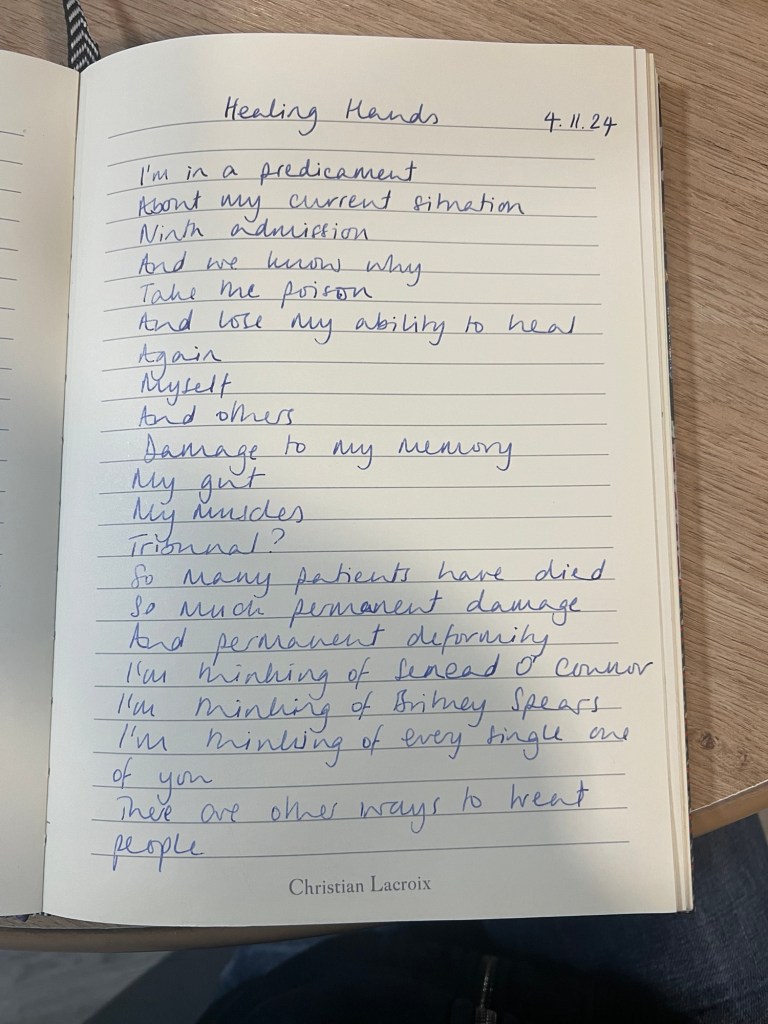 Healing Hands 4.11.24
I'm in a predicament
About my current situation
Ninth admission
And we know why
Take the poison
And lose my ability to heal
Again
Myself
And others
Damage to my memory
My gut
My muscles
Tribunal?
So many patients have died
So much permanent damage
And permanent deformity
I'm thinking of Senead O' Connor
I'm thinking of Britney Spears
I'm thinking of every single one
of you
There are other ways to treat
people
Christian Lacroix